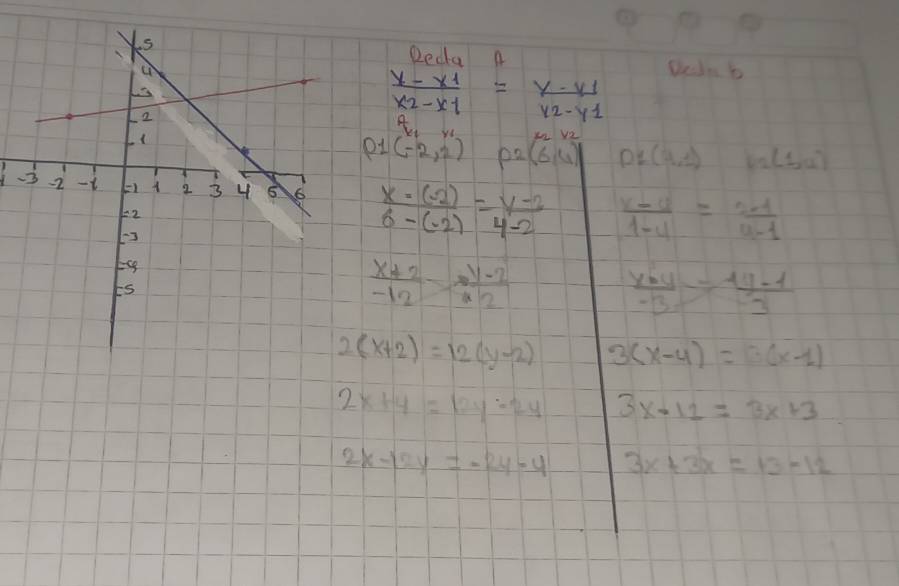 5
4
3
2
1
-3 -2 -1 -1 1 2 3 4 5 6
-2
-3
-4
-5
Recta A
x - x1 / x2 - x1 = y - y1 / y2 - y1
A
x1 y1 x2 y2
P1(-2,2) P2(6,4)
x - (-2) / 6 - (-2) = y - 2 / 4 - 2
x + 2 / -12 y - 2 / 2
2(x+2) = 12(y-2)
2x + 4 = 12y - 24
2x - 12y = -24 - 4
Recta b
P1(4,1)
x - 4 / 1 - 4 = / 4 - 1
/ -3 - 1 / 3
3(x-4) = 3(x-1)
3x - 12 = 3x + 3
3x + 3x = 13 - 12